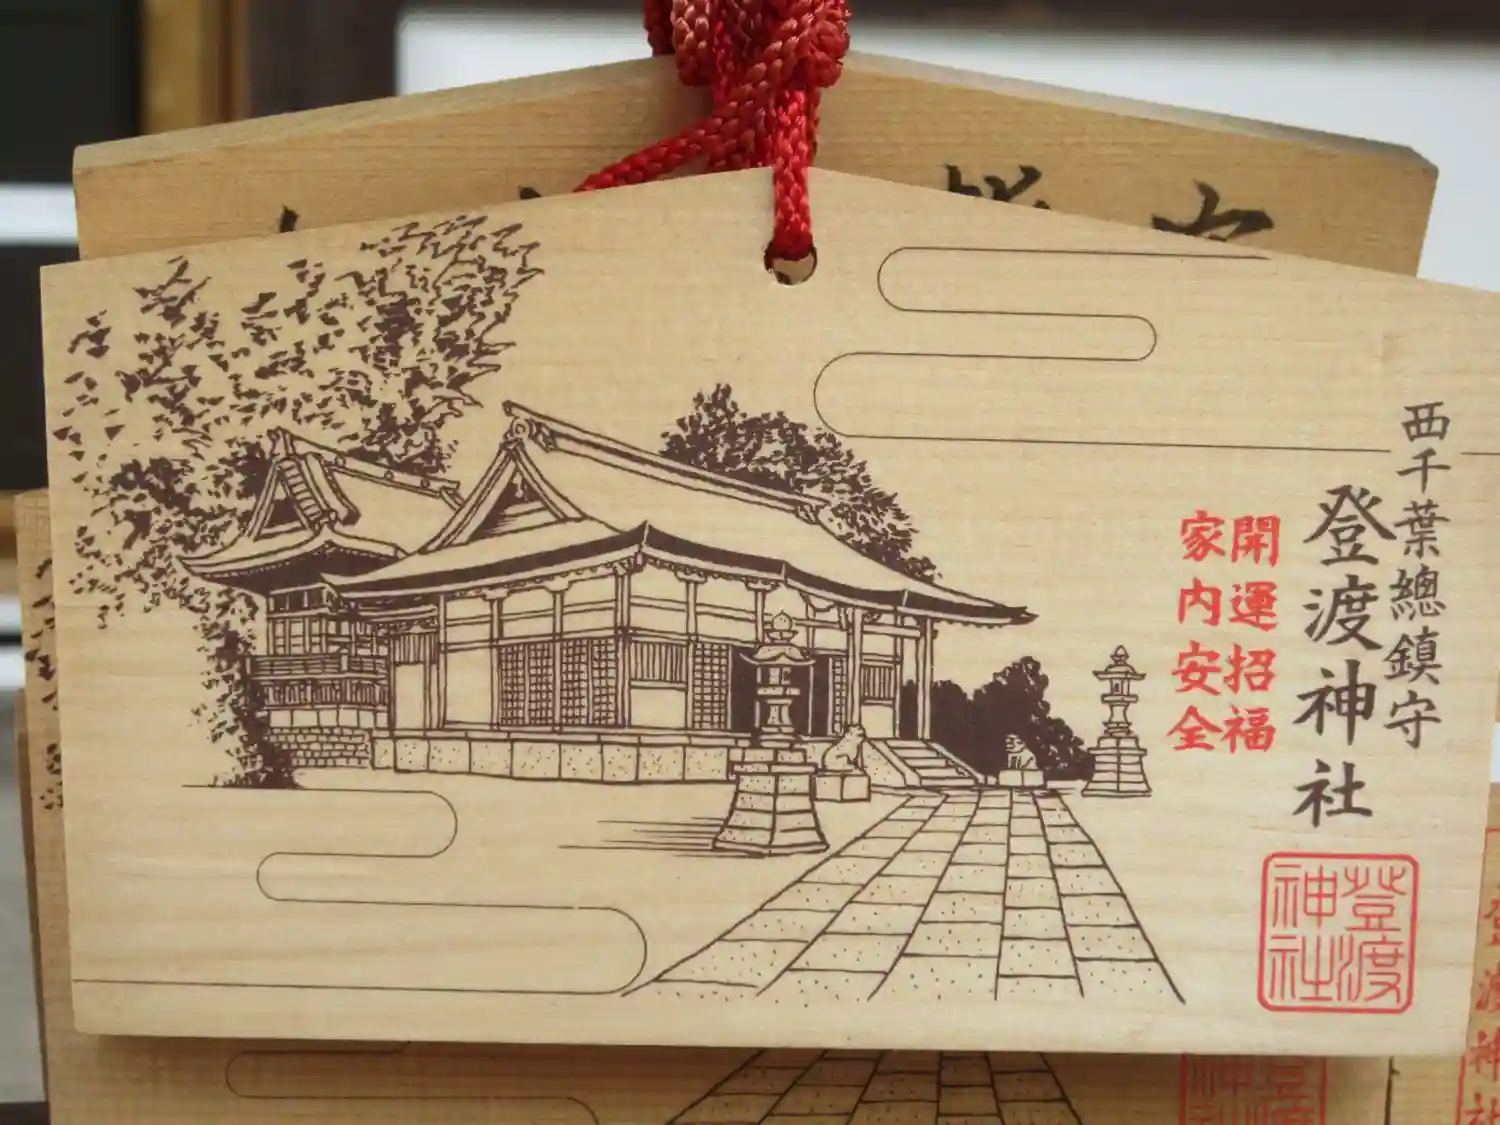 西千葉總鎮守
登渡神社
開運招福
家内安全
登渡
神社
登渡神社